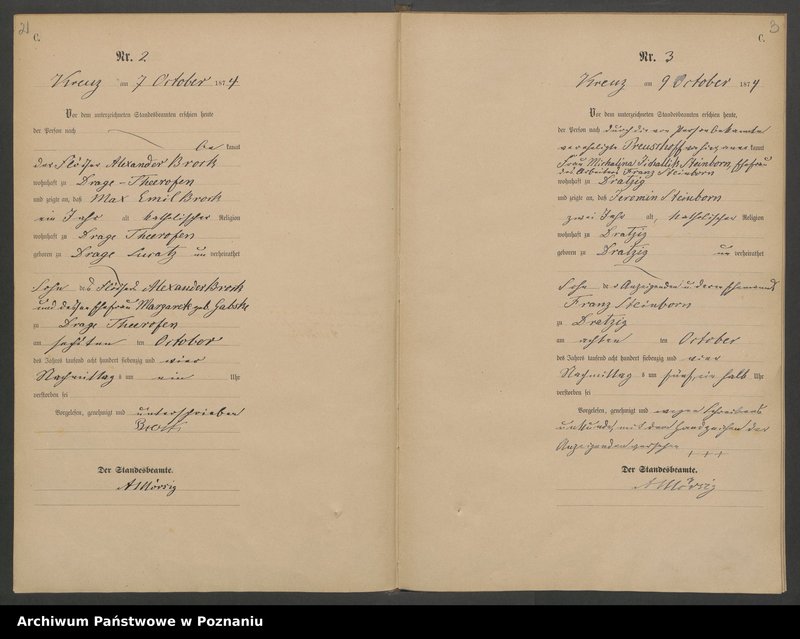 21
C.
Nr. 2
Kreuz am 7 October 1874
Vor dem unterzeichneten Standesbeamten erschien heute
der Person nach
be kannt
der Flößer Alexander Brork
wohnhaft zu Drage-Theerofen
und zeigte an, daß Max Emil Brork
ein Jahr alt katholischer Religion
wohnhaft zu Drage Theerofen
geboren zu Drage un verheirathet
Sohn des Flößers Alexander Brork
und dessen Ehefrau Margareth geb.
zu Drage Theerofen
am sechsten ten October
des Jahres tausend acht hundert siebenzig und vier
Nachmittag s um ein Uhr
verstorben sei
Vorgelesen, genehmigt und unterschrieben
Brork
Der Standesbeamte.
A Mörsig
3
C.
Nr. 3
Kreuz am 9 October 1874
Vor dem unterzeichneten Standesbeamten erschien heute
der Person nach durch die von Person bekannte
verehelichte kannt
Frau Michalina Steinborn, Ehefrau
des Arbeiters Franz Steinborn
wohnhaft zu Dratzig
und zeigte an, daß Jeromin Steinborn
zwei Jahr alt, katholischer Religion
wohnhaft zu Dratzig
geboren zu Dratzig un verheirathet
Sohn der Anzeigenden u. deren Ehemanns
Franz Steinborn
zu Dratzig
am achten ten October
des Jahres tausend acht hundert siebenzig und vier
Nachmittag s um fünf ein halb Uhr
verstorben sei
Vorgelesen, genehmigt und wegen Schreibens
unkunde, mit dem Handzeichen der
Anzeigenden versehen +++
Der Standesbeamte.
A Mörsig
Archiwum Państwowe w Poznaniu